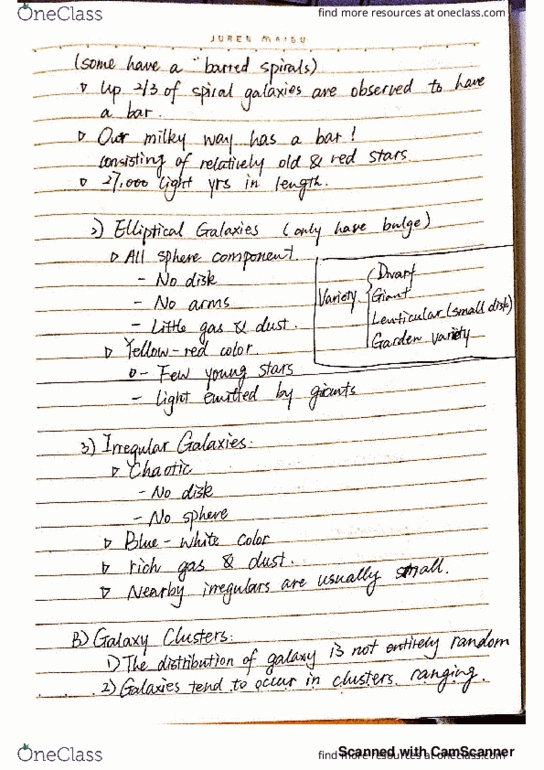 OneClass
find more resources at oneclass.com
(some have a "barred spirals)
▷ Up 2/3 of spiral galaxies are observed to have
a bar.
▷ Our milky way has a bar!
consisting of relatively old & red stars.
▷ 27,000 light yrs in length.
2) Elliptical Galaxies (only have bulge)
▷ All sphere component.
- No disk
- No arms
- Little gas & dust.
Variety { Dwarf
Giant
Lenticular (small disk)
Garden variety
▷ Yellow-red color.
- Few young stars
- Light emitted by giants
3) Irregular Galaxies:
▷ Chaotic
- No disk
- No sphere
▷ Blue-white color
▷ rich gas & dust.
▷ Nearby irregulars are usually small.
B) Galaxy Clusters:
1) The distribution of galaxy is not entirely random
2) Galaxies tend to occur in clusters ranging.
OneClass
find more resources at oneclass.com
Scanned with CamScanner